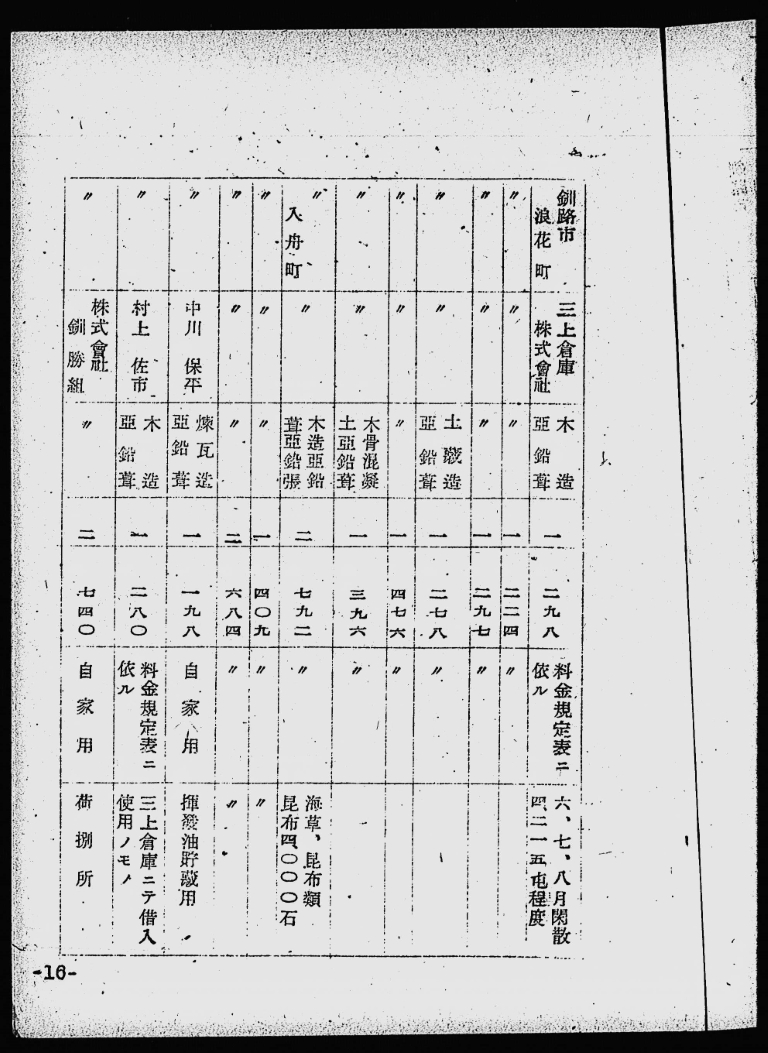 釧路市
浪花町
三上倉庫
株式會社
木造
亞鉛葺
一
二九八
料金規定表ニ
依ル
六、七、八月閑散
四二一五屯程度
〃
〃
〃
一
二二四
〃
〃
〃
〃
一
二九七
〃
〃
〃
土藏造
亞鉛葺
一
二七八
〃
〃
〃
〃
一
四七六
〃
〃
〃
木骨混凝
土亞鉛葺
一
三九六
〃
〃
入舟町
〃
木造亞鉛
葺亞鉛張
二
七九二
〃
海草、昆布類
昆布四〇〇〇石
〃
〃
〃
一
四〇九
〃
〃
〃
〃
〃
二
六八四
〃
〃
〃
中川保平
煉瓦造
亞鉛葺
一
一九八
自家用
揮發油貯藏用
〃
村上佐市
木造
亞鉛葺
一
二八〇
料金規定表ニ
依ル
三上倉庫ニテ借入
使用ノモノ
〃
株式會社
釧勝組
〃
二
七四〇
自家用
荷捌所
-16-